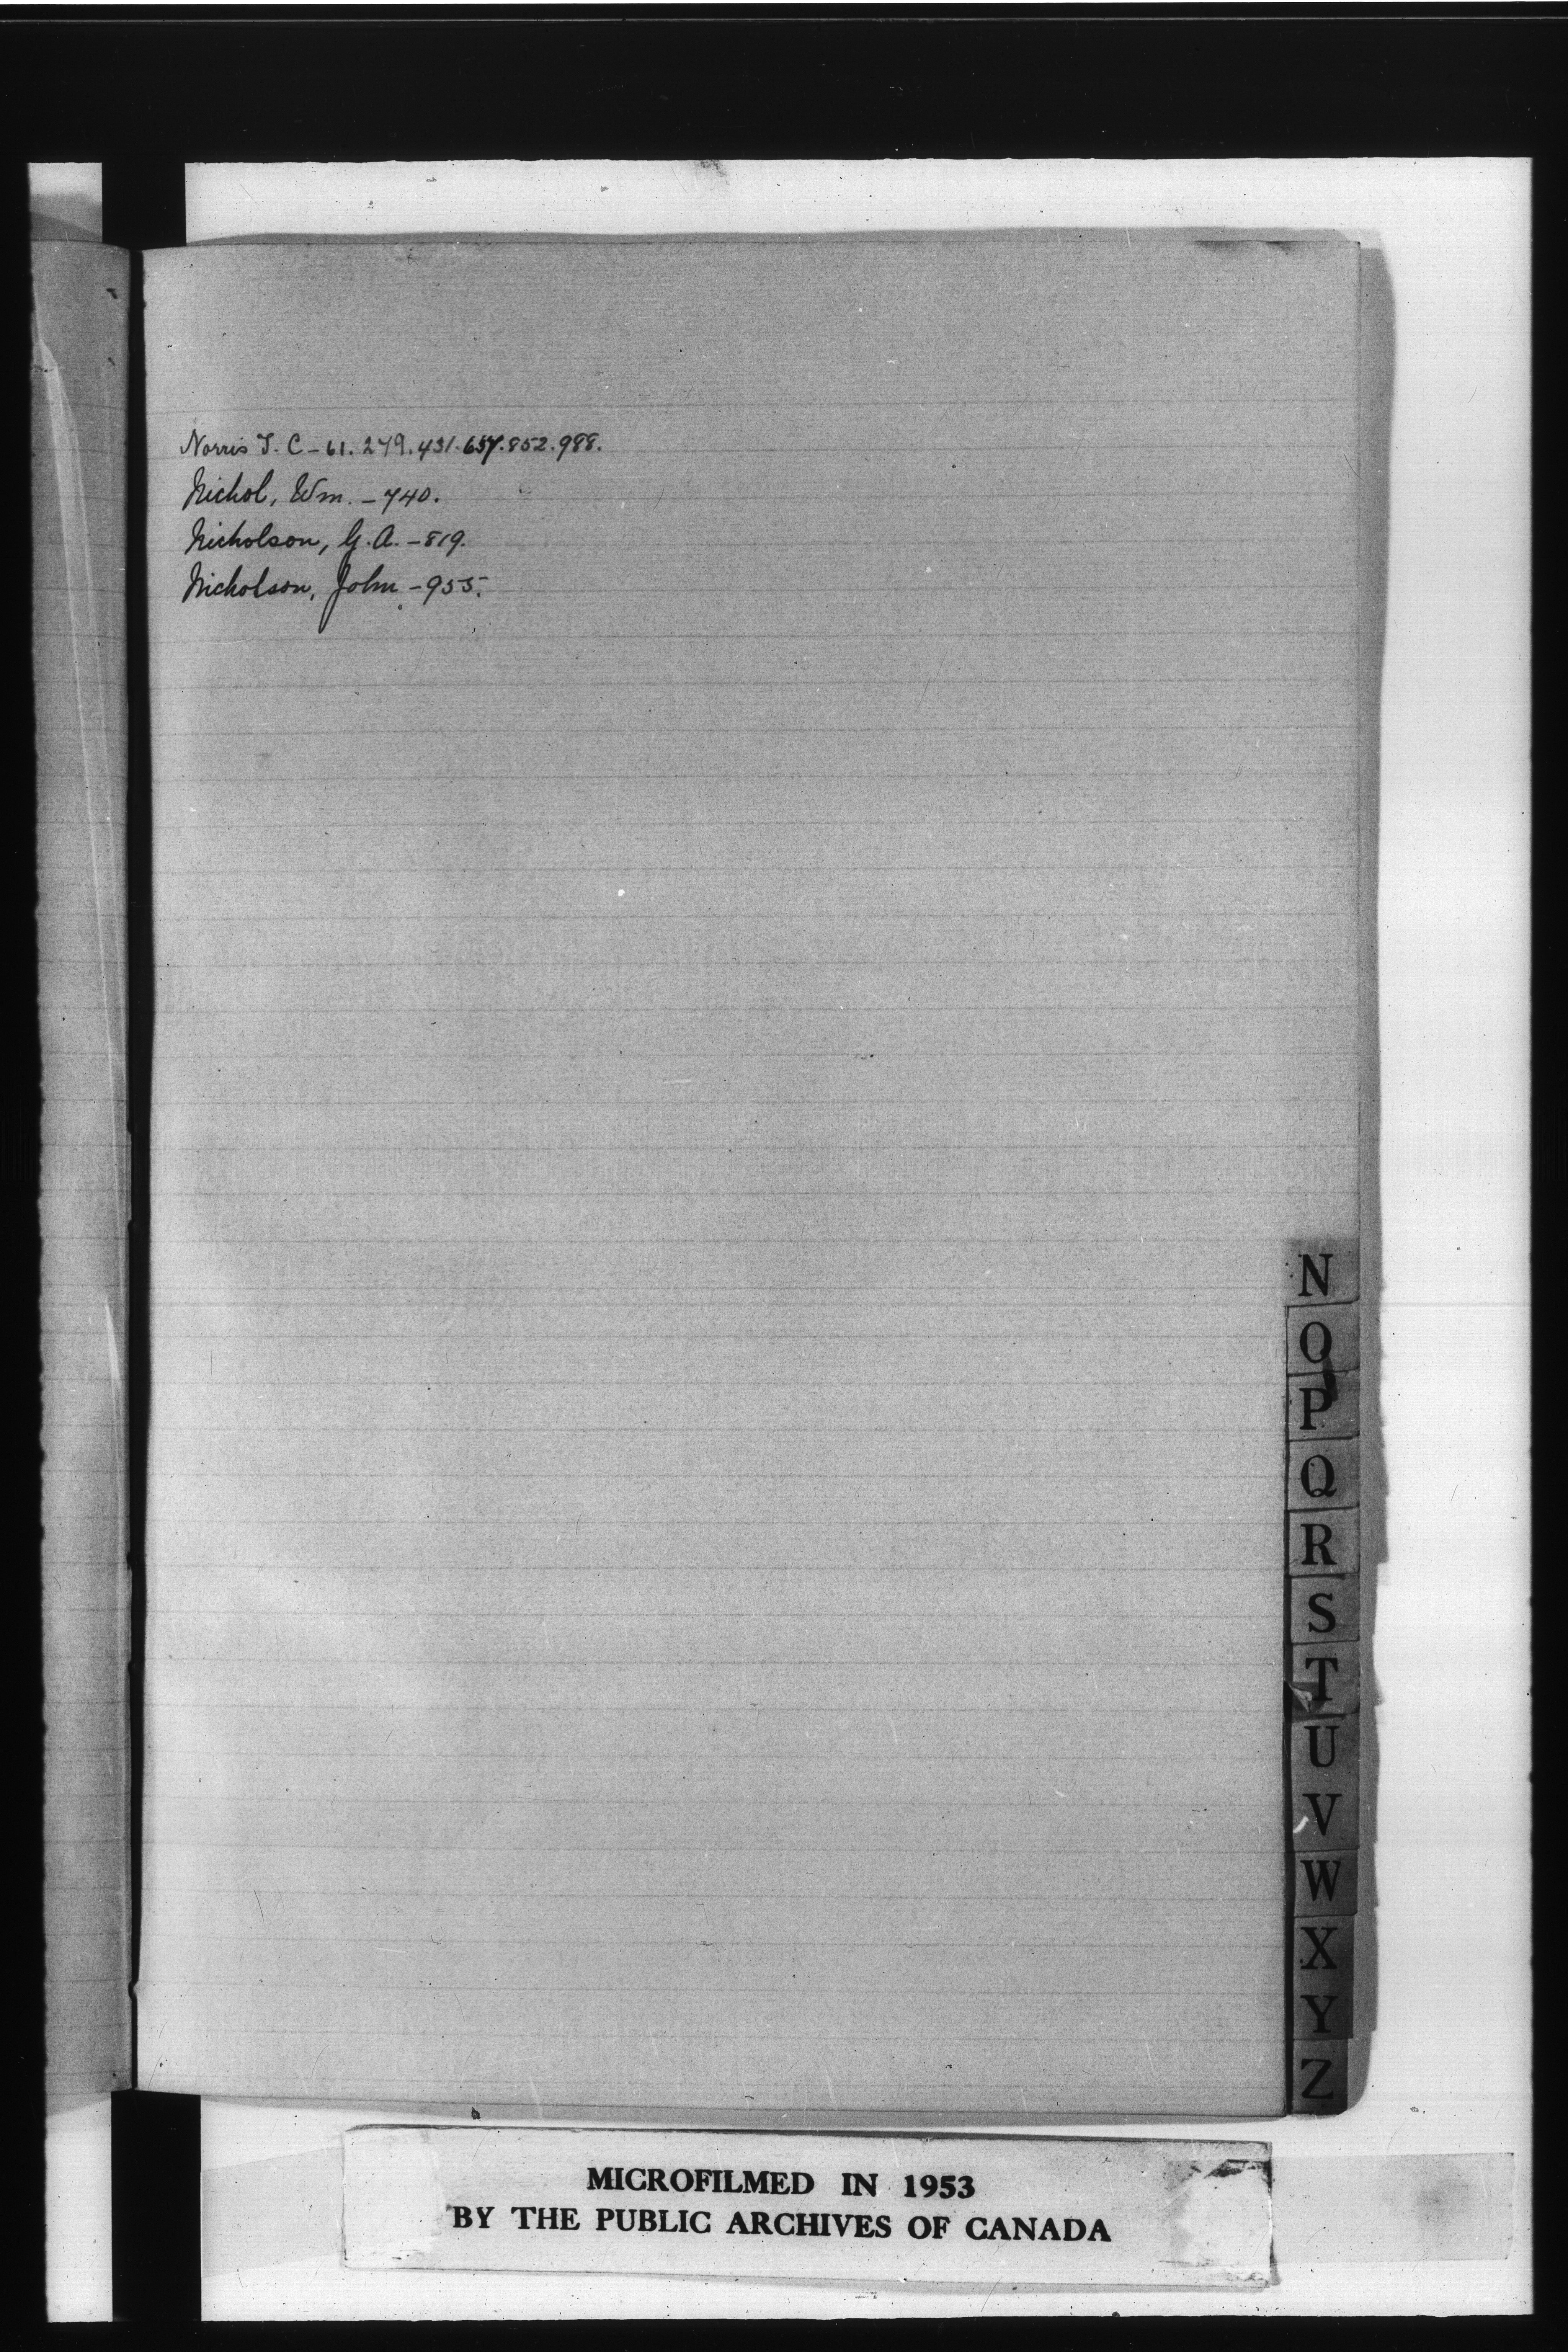 Norris T. C - 61. 279. 431. 657. 852. 988.
Nichol, Wm. - 740.
Nicholson, G. A. - 819.
Nicholson, John - 955.
N
O
P
Q
R
S
T
U
V
W
X
Y
Z
MICROFILMED IN 1953
BY THE PUBLIC ARCHIVES OF CANADA